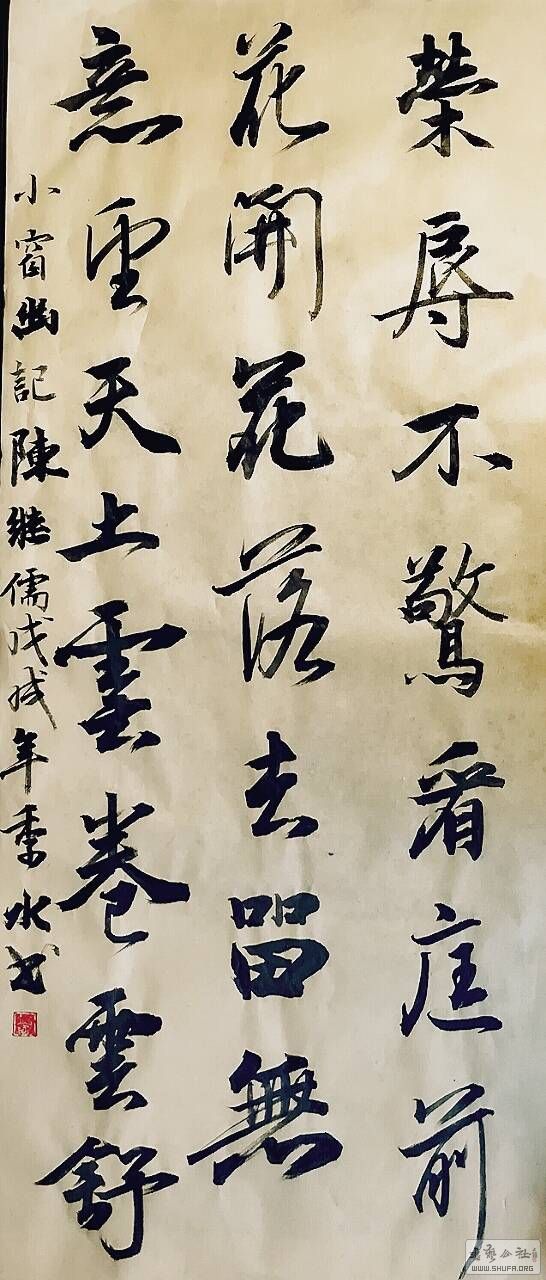 榮辱不驚看庭前
花開花落去留無
意望天上雲卷雲舒
小窗幽記陳継儒戊戌年季水书
WWW.SHUFA.ORG